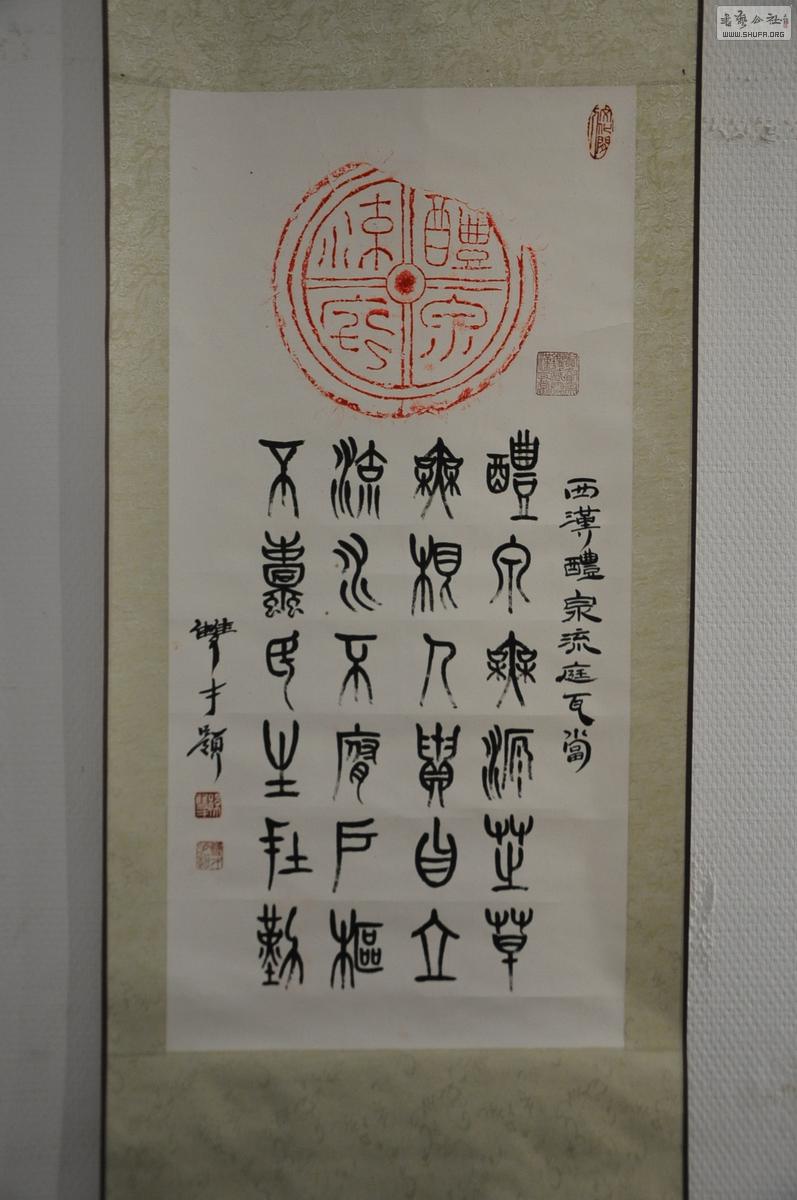 書藝公社
WWW.SHUFA.ORG
醴泉流庭
西漢醴泉流庭瓦當
醴泉無源芝草
無根人貴自立
流水不腐戶樞
不蠹民生在勤
雙才題